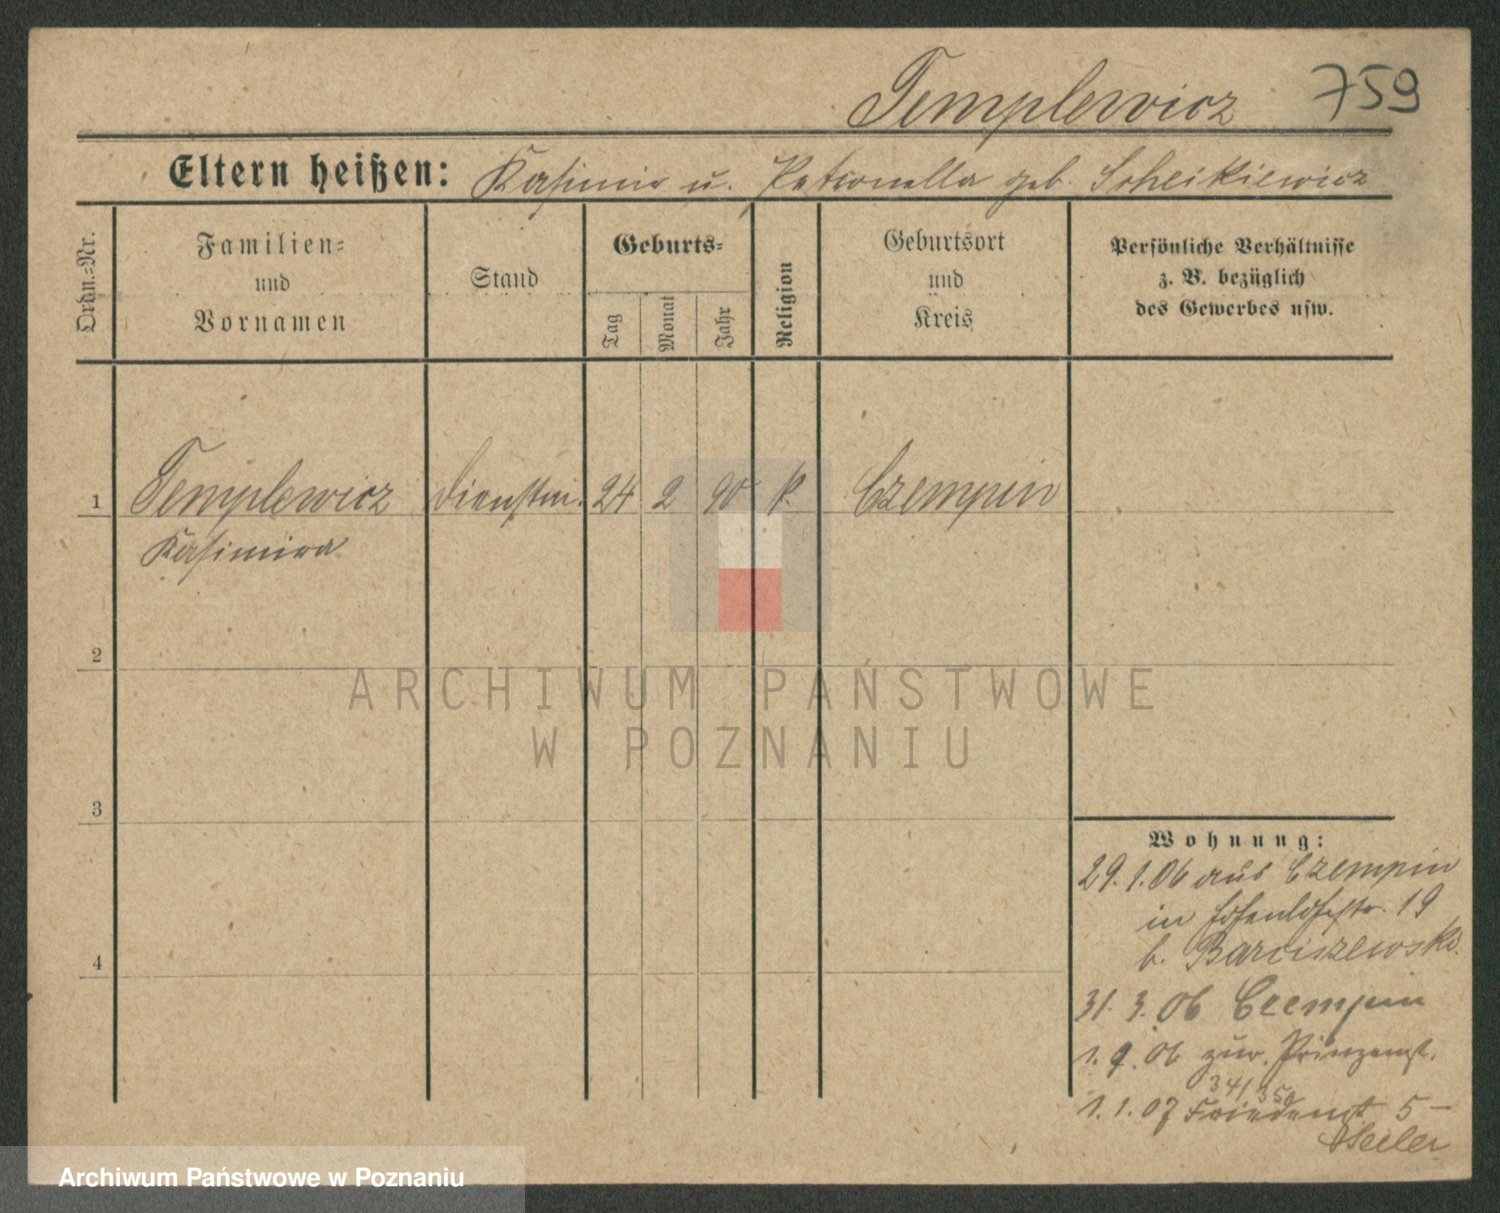 Templewicz 759
Eltern heißen: Kasimir u. Petronella geb. Scheikiewicz
Ordn.-Nr.
Familien-
und
Vornamen
Stand
Geburts-
Tag
Monat
Jahr
Religion
Geburtsort
und
Kreis
Persönliche Verhältnisse
z. B. bezüglich
des Gewerbes usw.
1 Templewicz Dienstm. 24 2 90 k. Czempin
Kasimira
2
3
4
Wohnung:
29.1.06 aus Czempin
in Hohenlohestr. 19
b. Barciszewski
31. 3. 06 Czempin
1. 9. 06 zur. Prinzenst.
34/35
1. 1. 07 Friedenst 5 –
ARCHIWUM PAŃSTWOWE
W POZNANIU
Archiwum Państwowe w Poznaniu